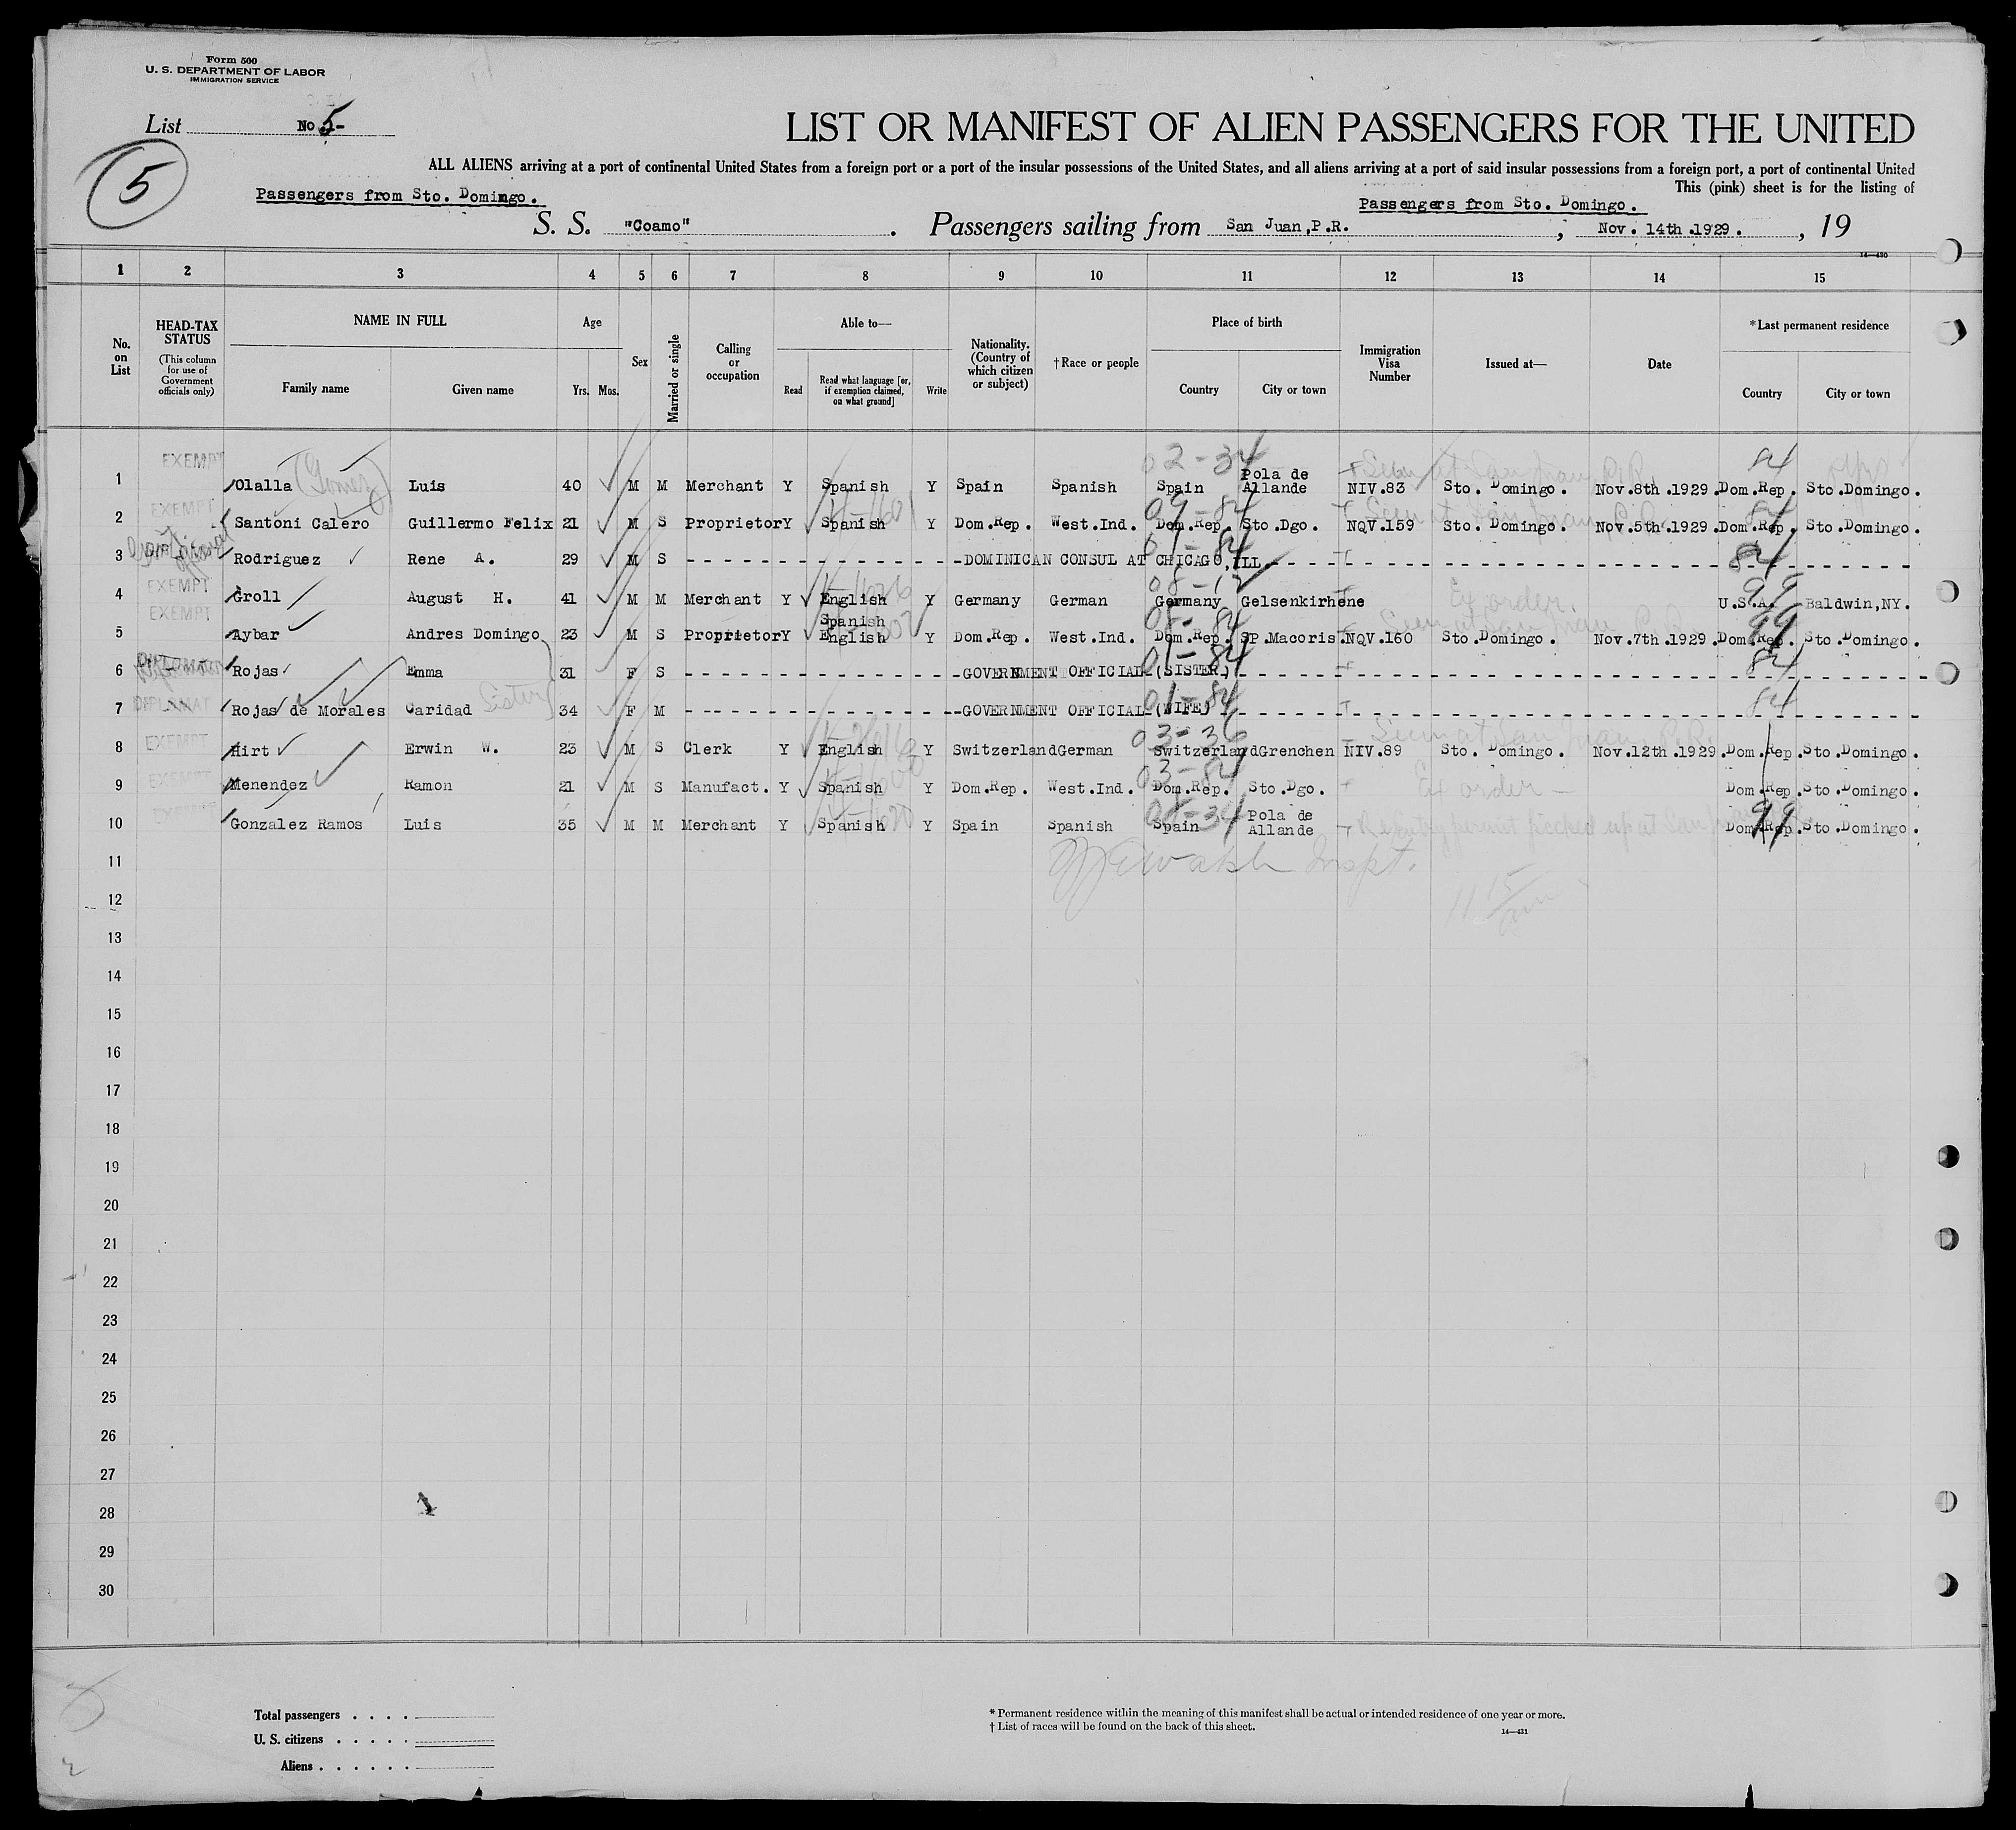 Form 500
U. S. DEPARTMENT OF LABOR
IMMIGRATION SERVICE
List No 5-
5
LIST OR MANIFEST OF ALIEN PASSENGERS FOR THE UNITED
ALL ALIENS arriving at a port of continental United States from a foreign port or a port of the insular possessions of the United States, and all aliens arriving at a port of said insular possessions from a foreign port, a port of continental United
This (pink) sheet is for the listing of
Passengers from Sto. Domingo. Passengers from Sto. Domingo.
S. S. "Coamo". Passengers sailing from San Juan,P.R. ; Nov. 14th.1929. , 19
14—430
1 2 3 4 5 6 7 8 9 10 11 12 13 14 15
No. on List
HEAD-TAX STATUS
(This column for use of Government officials only)
NAME IN FULL
Family name Given name
Age
Yrs. Mos.
Sex
Married or single
Calling or occupation
Able to—
Read
Read what language [or, if exemption claimed, on what ground]
Write
Nationality. (Country of which citizen or subject)
†Race or people
Place of birth
Country City or town
Immigration Visa Number
Issued at—
Date
*Last permanent residence
Country City or town
1 EXEMPT Olalla (Gomez) Luis 40 M M Merchant Y Spanish Y Spain Spanish 02-34 Spain Pola de Allande NIV.83 Sto. Domingo. Nov.8th.1929. 84 Dom.Rep. Sto.Domingo.
2 EXEMPT Santoni Calero Guillermo Felix 21 M S Proprietor Y Spanish Y Dom.Rep. West.Ind. Dom.Rep. Sto.Dgo. NQV.159 Sto. Domingo. Nov.5th.1929. 84 Dom.Rep. Sto.Domingo.
3 Rodriguez Rene A. 29 M S - - - - - -DOMINICAN CONSUL AT CHICAGO,ILL- - - - - 84
4 EXEMPT Groll August H. 41 M M Merchant Y English Y Germany German Germany Gelsenkirhene Ex order. 99 U.S.A. Baldwin,NY.
5 EXEMPT Aybar Andres Domingo 23 M S Proprietor Y Spanish English Y Dom.Rep. West.Ind. 08-84 Dom.Rep. SP.Macoris. NQV.160 Sto.Domingo. Nov.7th.1929. Dom.Rep. Sto.Domingo.
6 DIPLOMAT Rojas Emma 31 F S - - - - - -GOVERNMENT OFFICIAL-(SISTER)- - - - - 01-84 84
7 DIPLOMAT Rojas de Morales Caridad Sister 34 F M - - - - - -GOVERNMENT OFFICIAL-(WIFE)- - - - - 01-84 84
8 EXEMPT Hirt Erwin W. 23 M S Clerk Y English Y Switzerland German 03-36 Switzerland Grenchen NIV.89 Sto. Domingo. Nov.12th.1929. Dom.Rep. Sto.Domingo.
9 EXEMPT Menendez Ramon 21 M S Manufact. Y Spanish Y Dom.Rep. West.Ind. 03-84 Dom.Rep. Sto.Dgo. Ex order - Dom.Rep. Sto.Domingo.
10 EXEMPT Gonzalez Ramos Luis 35 M M Merchant Y Spanish Y Spain Spanish Spain Pola de Allande 99 Dom.Rep. Sto.Domingo.
11 Inspt.
12 11 15 am
13
14
15
16
17
18
19
20
21
22
23
24
25
26
27
28
29
30
Total passengers . . . .
U. S. citizens . . . . .
Aliens . . . . . .
* Permanent residence within the meaning of this manifest shall be actual or intended residence of one year or more.
† List of races will be found on the back of this sheet.
14—431